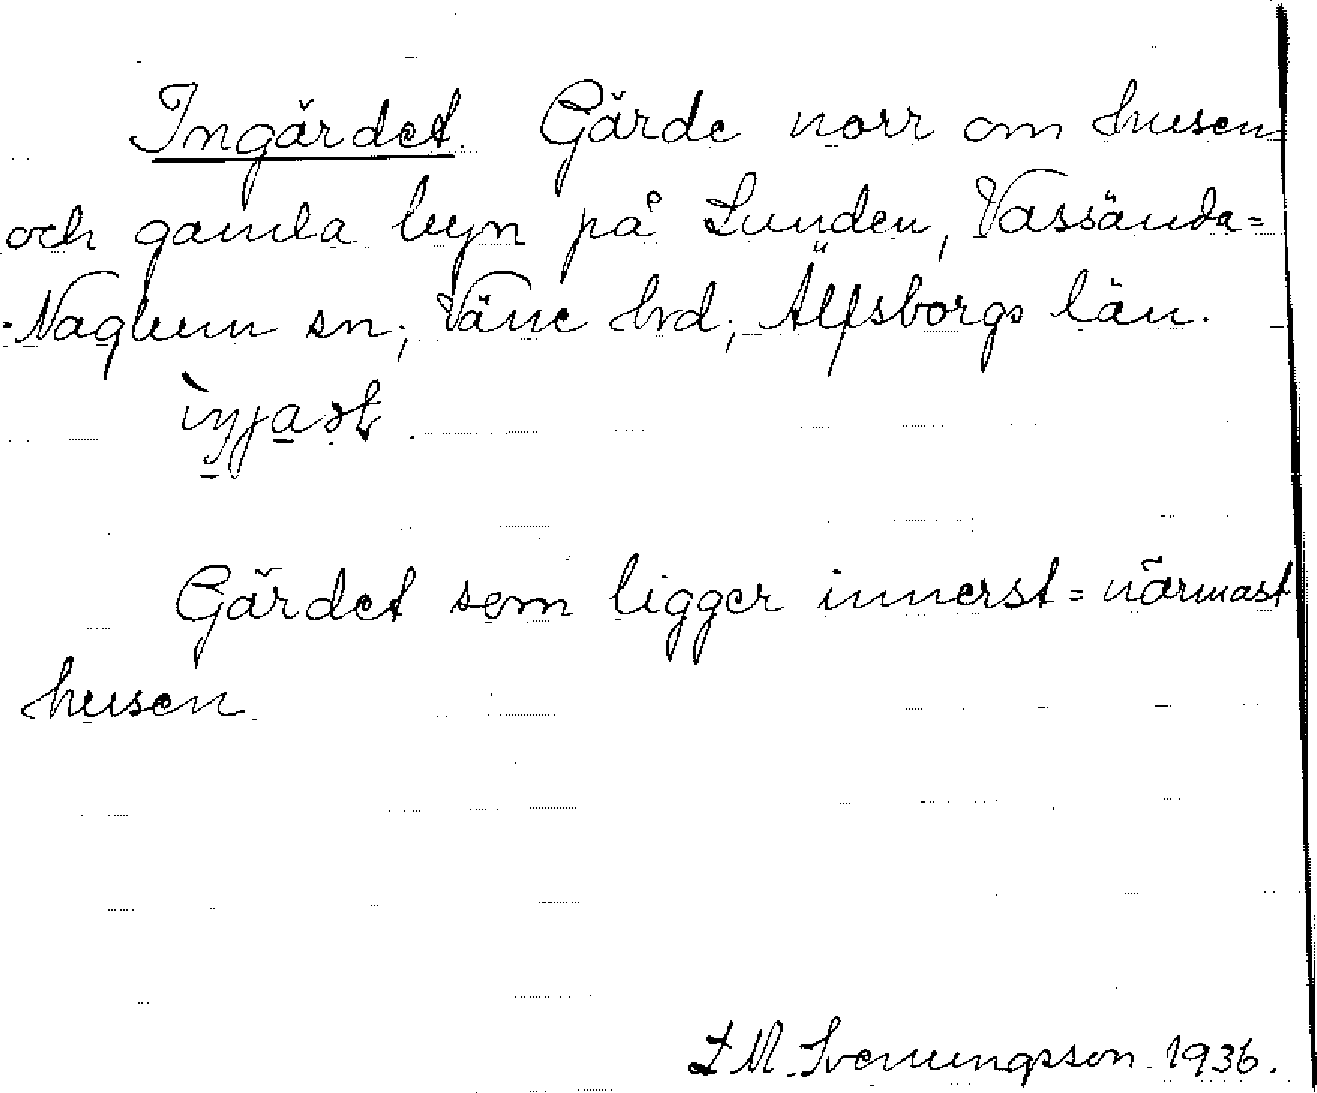 Ingärdet. Gärde norr om husen
och gamla byn på Lunden, Vassända=
-Naglum sn; Väne hd; Älfsborgs län.
Gärdet som ligger innerst = närmast
husen
L M. Svenungsson 1936.